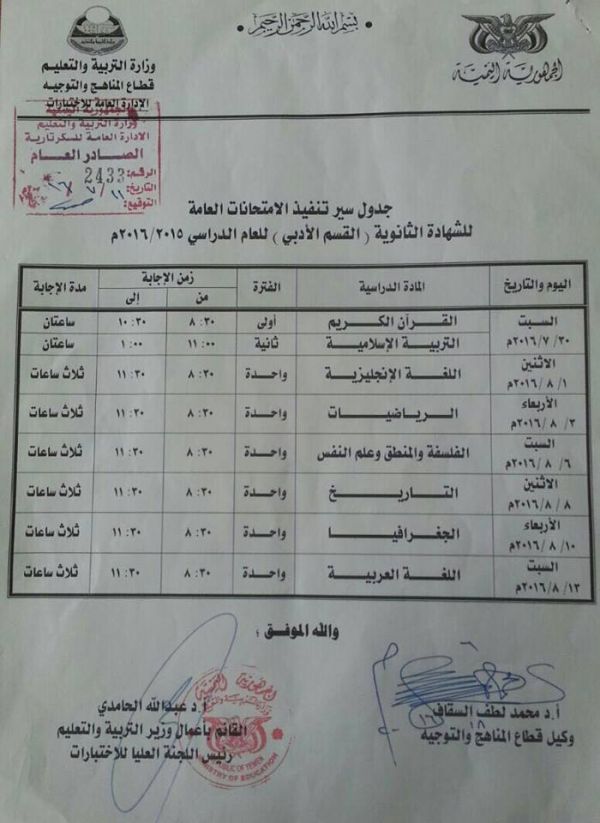 بسم الله الرحمن الرحيم
الجمهورية اليمنية
وزارة التربية والتعليم
قطاع المناهج والتوجيه
الإدارة العامة للاختبارات
وزارة التربية والتعليم
الادارة العامة للسكرتارية
الصادر العام
الرقم: 2433
التاريخ:
التوقيع:
جدول سير تنفيذ الامتحانات العامة
للشهادة الثانوية ( القسم الأدبي ) للعام الدراسي ٢٠١٦/٢٠١٥م
اليوم والتاريخ المادة الدراسية الفترة زمن الإجابة مدة الإجابة
من إلى
السبت القرآن الكريم أولى ٨:٣٠ ١٠:٣٠ ساعتان
٢٠١٦/٧/٣٠م التربية الإسلامية ثانية ١١:٠٠ ١:٠٠ ساعتان
الاثنين اللغة الإنجليزية واحدة ٨:٣٠ ١١:٣٠ ثلاث ساعات
٢٠١٦/٨/١م
الأربعاء الرياضيات واحدة ٨:٣٠ ١١:٣٠ ثلاث ساعات
٢٠١٦/٨/٣م
السبت الفلسفة والمنطق وعلم النفس واحدة ٨:٣٠ ١١:٣٠ ثلاث ساعات
٢٠١٦/٨/٦م
الاثنين التاريخ واحدة ٨:٣٠ ١١:٣٠ ثلاث ساعات
٢٠١٦/٨/٨م
الأربعاء الجغرافيا واحدة ٨:٣٠ ١١:٣٠ ثلاث ساعات
٢٠١٦/٨/١٠م
السبت اللغة العربية واحدة ٨:٣٠ ١١:٣٠ ثلاث ساعات
٢٠١٦/٨/١٣م
والله الموفق ؛
أ.د محمد لطف السقاف
وكيل قطاع المناهج والتوجيه
أ.د عبدالله الحامدي
القائم بأعمال وزير التربية والتعليم
رئيس اللجنة العليا للاختبارات
REPUBLIC OF YEMEN
MINISTRY OF EDUCATION